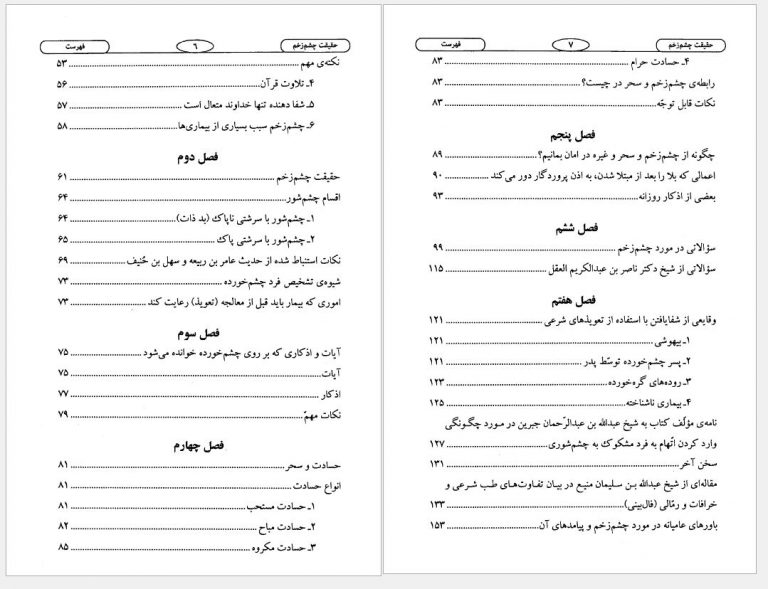 حقیقت چشم‌زخم ۶ فهرست
نکته‌ی مهم ۵۳
۴ـ تلاوت قرآن ۵۶
۵ـ شفا دهنده تنها خداوند متعال است ۵۷
۶ـ چشم‌زخم سبب بسیاری از بیماری‌ها ۵۸
فصل دوم
حقیقت چشم‌زخم ۶۱
اقسام چشم‌شور ۶۴
۱ـ چشم‌شور با سرشتی ناپاک (بد ذات) ۶۴
۲ـ چشم‌شور با سرشتی پاک ۶۵
نکات استنباط شده از حدیث عامر بن ربیعه و سهل بن حُنیف ۶۹
شیوه‌ی تشخیص فرد چشم‌خورده ۷۳
اموری که بیمار باید قبل از معالجه (تعویذ) رعایت کند ۷۳
فصل سوم
آیات و اذکاری که بر روی چشم‌خورده خوانده می‌شود ۷۵
آیات ۷۵
اذکار ۷۷
نکات مهمّ ۷۹
فصل چهارم
حسادت و سحر ۸۱
انواع حسادت ۸۱
۱ـ حسادت مستحب ۸۱
۲ـ حسادت مباح ۸۲
۳ـ حسادت مکروه ۸۵
حقیقت چشم‌زخم ۷ فهرست
۴ـ حسادت حرام ۸۳
رابطه‌ی چشم‌زخم و سحر در چیست؟ ۸۳
نکات قابل توجّه ۸۳
فصل پنجم
چگونه از چشم‌زخم و سحر و غیره در امان بمانیم؟ ۸۹
اعمالی که بلا را بعد از مبتلا شدن، به اذن پروردگار دور می‌کند ۹۰
بعضی از اذکار روزانه ۹۳
فصل ششم
سؤالاتی در مورد چشم‌زخم ۹۹
سؤالاتی از شیخ دکتر ناصر بن عبدالکریم العقل ۱۱۵
فصل هفتم
وقایعی از شفایافتن با استفاده از تعویذهای شرعی ۱۲۱
۱ـ بیهوشی ۱۲۱
۲ـ پسر چشم‌خورده توسّط پدر ۱۲۱
۳ـ روده‌های گره‌خورده ۱۲۳
۴ـ بیماری ناشناخته ۱۲۵
نامه‌ی مؤلّف کتاب به شیخ عبدالله بن عبدالرّحمان جبرین در مورد چگونگی
وارد کردن اتّهام به فرد مشکوک به چشم‌شوری ۱۲۷
سخن آخر ۱۳۱
مقاله‌ای از شیخ عبدالله بن سلیمان منیع در بیان تفاوت‌های طب شرعی و
خرافات و رمّالی (فال‌بینی) ۱۳۳
باورهای عامیانه در مورد چشم‌زخم و پیامدهای آن ۱۵۳